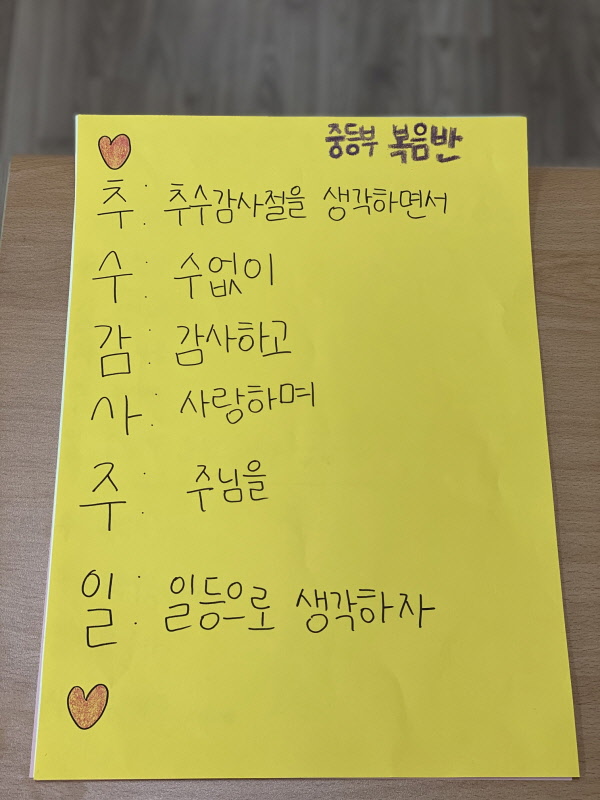 중등부 복음반
추 : 추수감사절을 생각하면서
수 : 수없이
감 : 감사하고
사 : 사랑하며
주 : 주님을
일 : 일등으로 생각하자